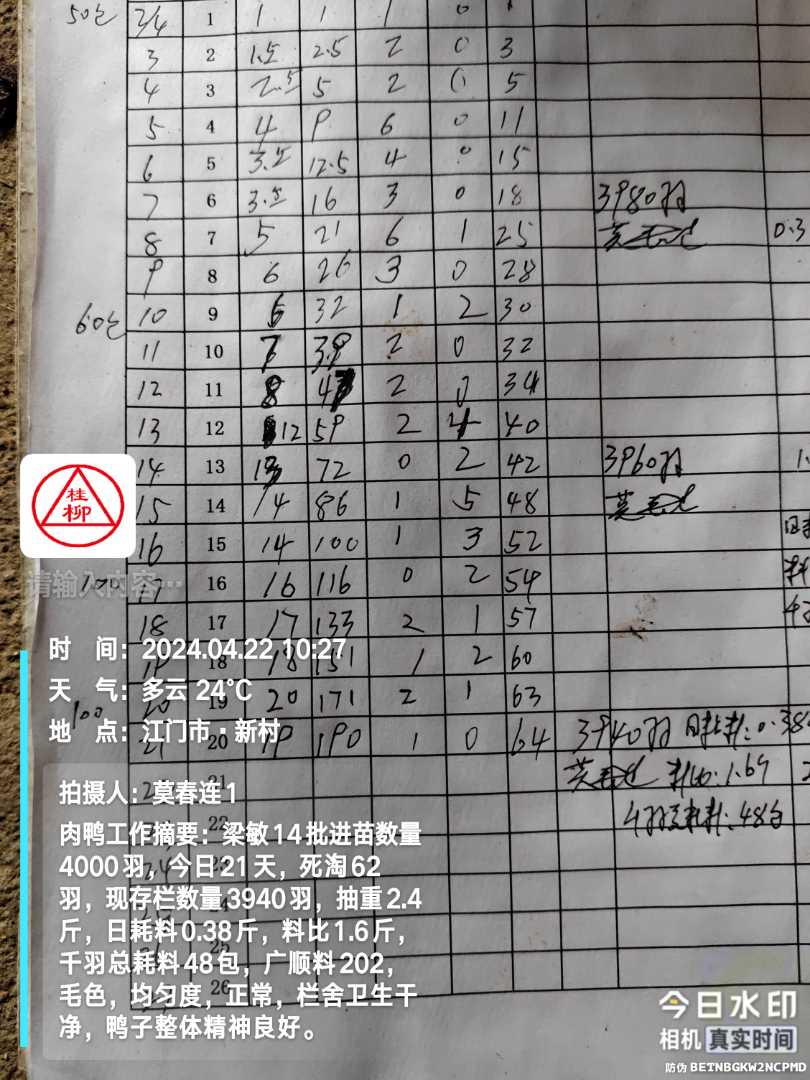 50包 3/4 1 1 1 1 0
3 2 1.5 2.5 2 0 3
4 3 2.5 5 2 0 5
5 4 4 9 6 0 11
6 5 3.5 12.5 4 0 15
7 6 3.5 16 3 0 18 3980羽
8 7 5 21 6 1 25 0.3
9 8 6 26 3 0 28
60包 10 9 6 32 1 2 30
11 10 7 39 2 0 32
12 11 8 47 2 0 34
13 12 12 59 2 4 40
14 13 13 72 0 2 42 3960羽 1.
15 14 14 86 1 5 48
16 15 14 100 1 3 52
100 17 16 16 116 0 2 54 料
18 17 17 133 2 1 57
19 18 18 151 1 2 60
100 20 19 20 171 2 1 63
21 20 19 190 1 0 64 3940羽 日耗料:0.38
21 料比:1.69
22 48包
23
24
25
26
桂
柳
请输入内容…
时 间：2024.04.22 10:27
天 气：多云 24℃
地 点：江门市·新村
拍摄人：莫春连1
肉鸭工作摘要：梁敏14批进苗数量
4000羽，今日21天，死淘62
羽，现存栏数量3940羽，抽重2.4
斤，日耗料0.38斤，料比1.6斤，
千羽总耗料48包，广顺料202，
毛色，均匀度，正常，栏舍卫生干
净，鸭子整体精神良好。
今日水印
相机 真实时间
防伪 BETNBGKW2NCPMD